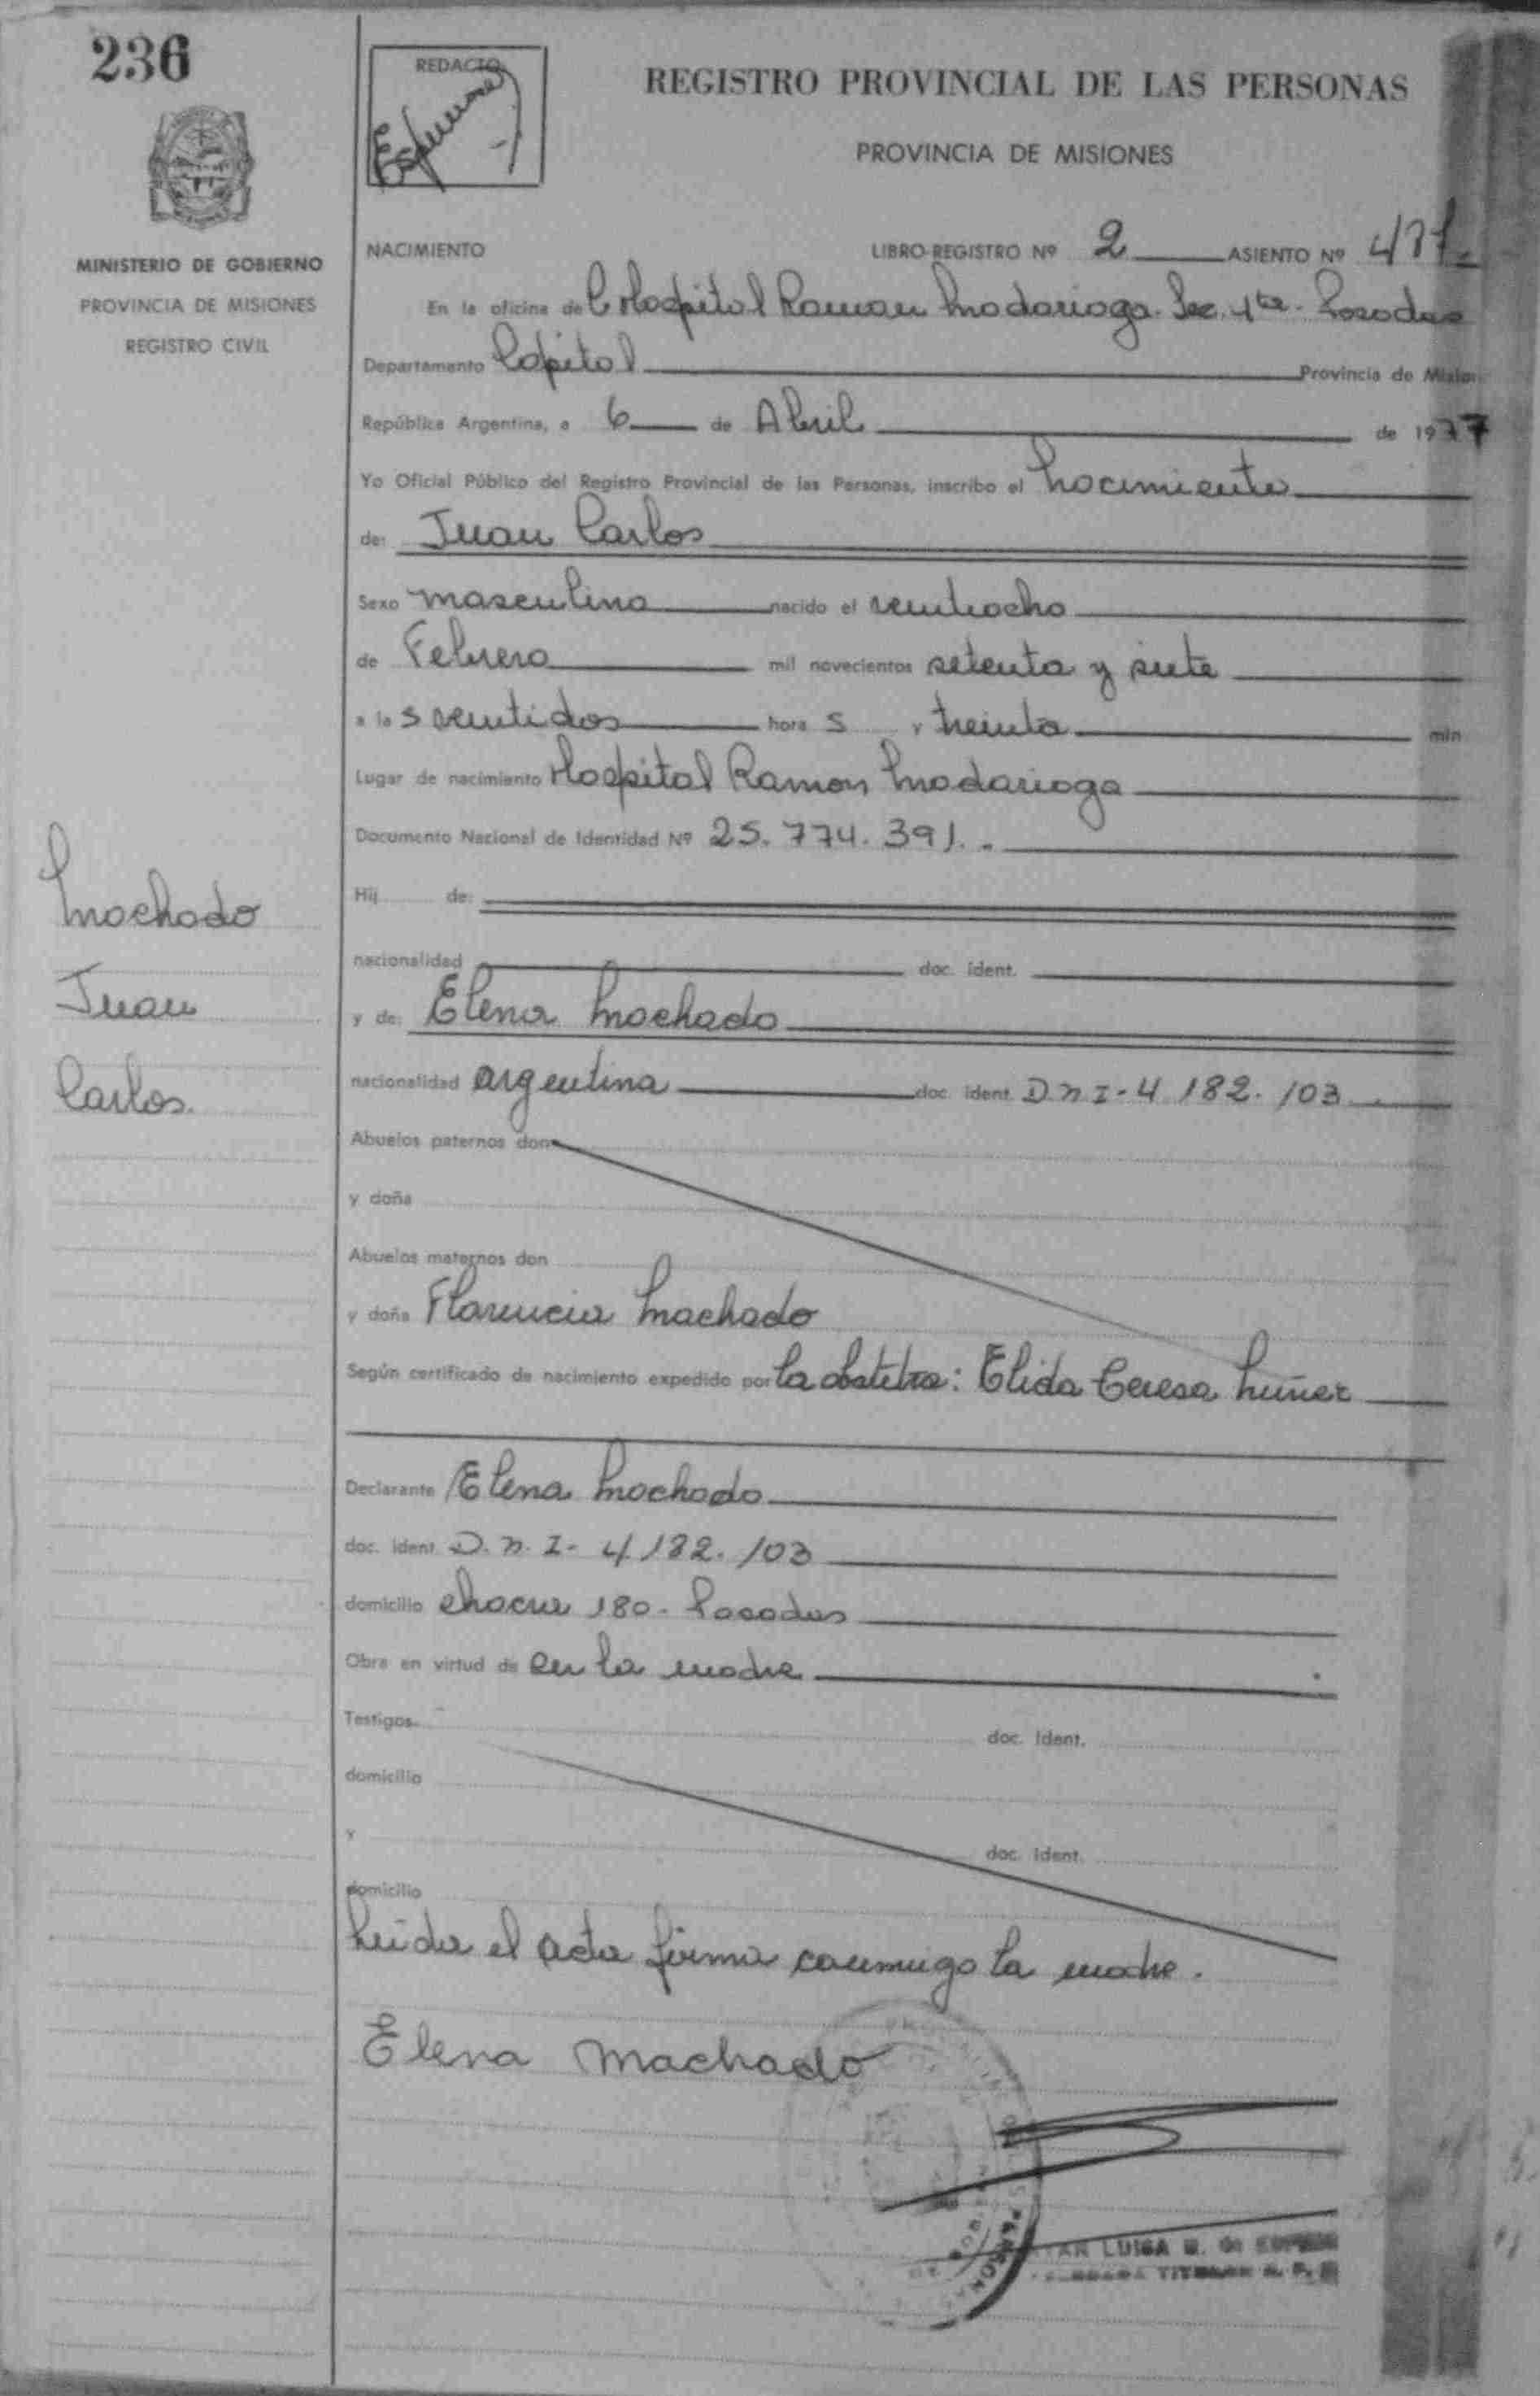 236
REDACTO
REGISTRO PROVINCIAL DE LAS PERSONAS
PROVINCIA DE MISIONES
MINISTERIO DE GOBIERNO
PROVINCIA DE MISIONES
REGISTRO CIVIL
NACIMIENTO LIBRO-REGISTRO Nº 2 ASIENTO Nº
En la oficina de Hospital Ramon Madariaga. Sec. 1ta. Posadas
Departamento Capital Provincia de
República Argentina, a 6 de Abril de 1977
Yo Oficial Público del Registro Provincial de las Personas, inscribo el Nacimiento
de: Juan Carlos
Sexo masculino nacido el veintiocho
de Febrero mil novecientos setenta y siete
a las veintidos horas y treinta min
Lugar de nacimiento Hospital Ramon Madariaga
Documento Nacional de Identidad Nº 25.774.391.-
Hij de:
nacionalidad doc. ident.
y de: Elena Machado
nacionalidad argentina doc. ident. D.N.I-4.182.103
Abuelos paternos don
y doña
Abuelos maternos don
y doña Florencia Machado
Según certificado de nacimiento expedido por la obstetra: Elida Teresa Nuñez
Declarante Elena Machado
doc. ident. D.N.I- 4.182.103
domicilio chacra 180- Posadas
Obra en virtud de ser la madre
Testigos doc. ident.
domicilio
y doc. ident.
domicilio
Leida el acta firma conmigo la madre.
Elena Machado
LUISA
TITULAR
Machado
Juan
Carlos.